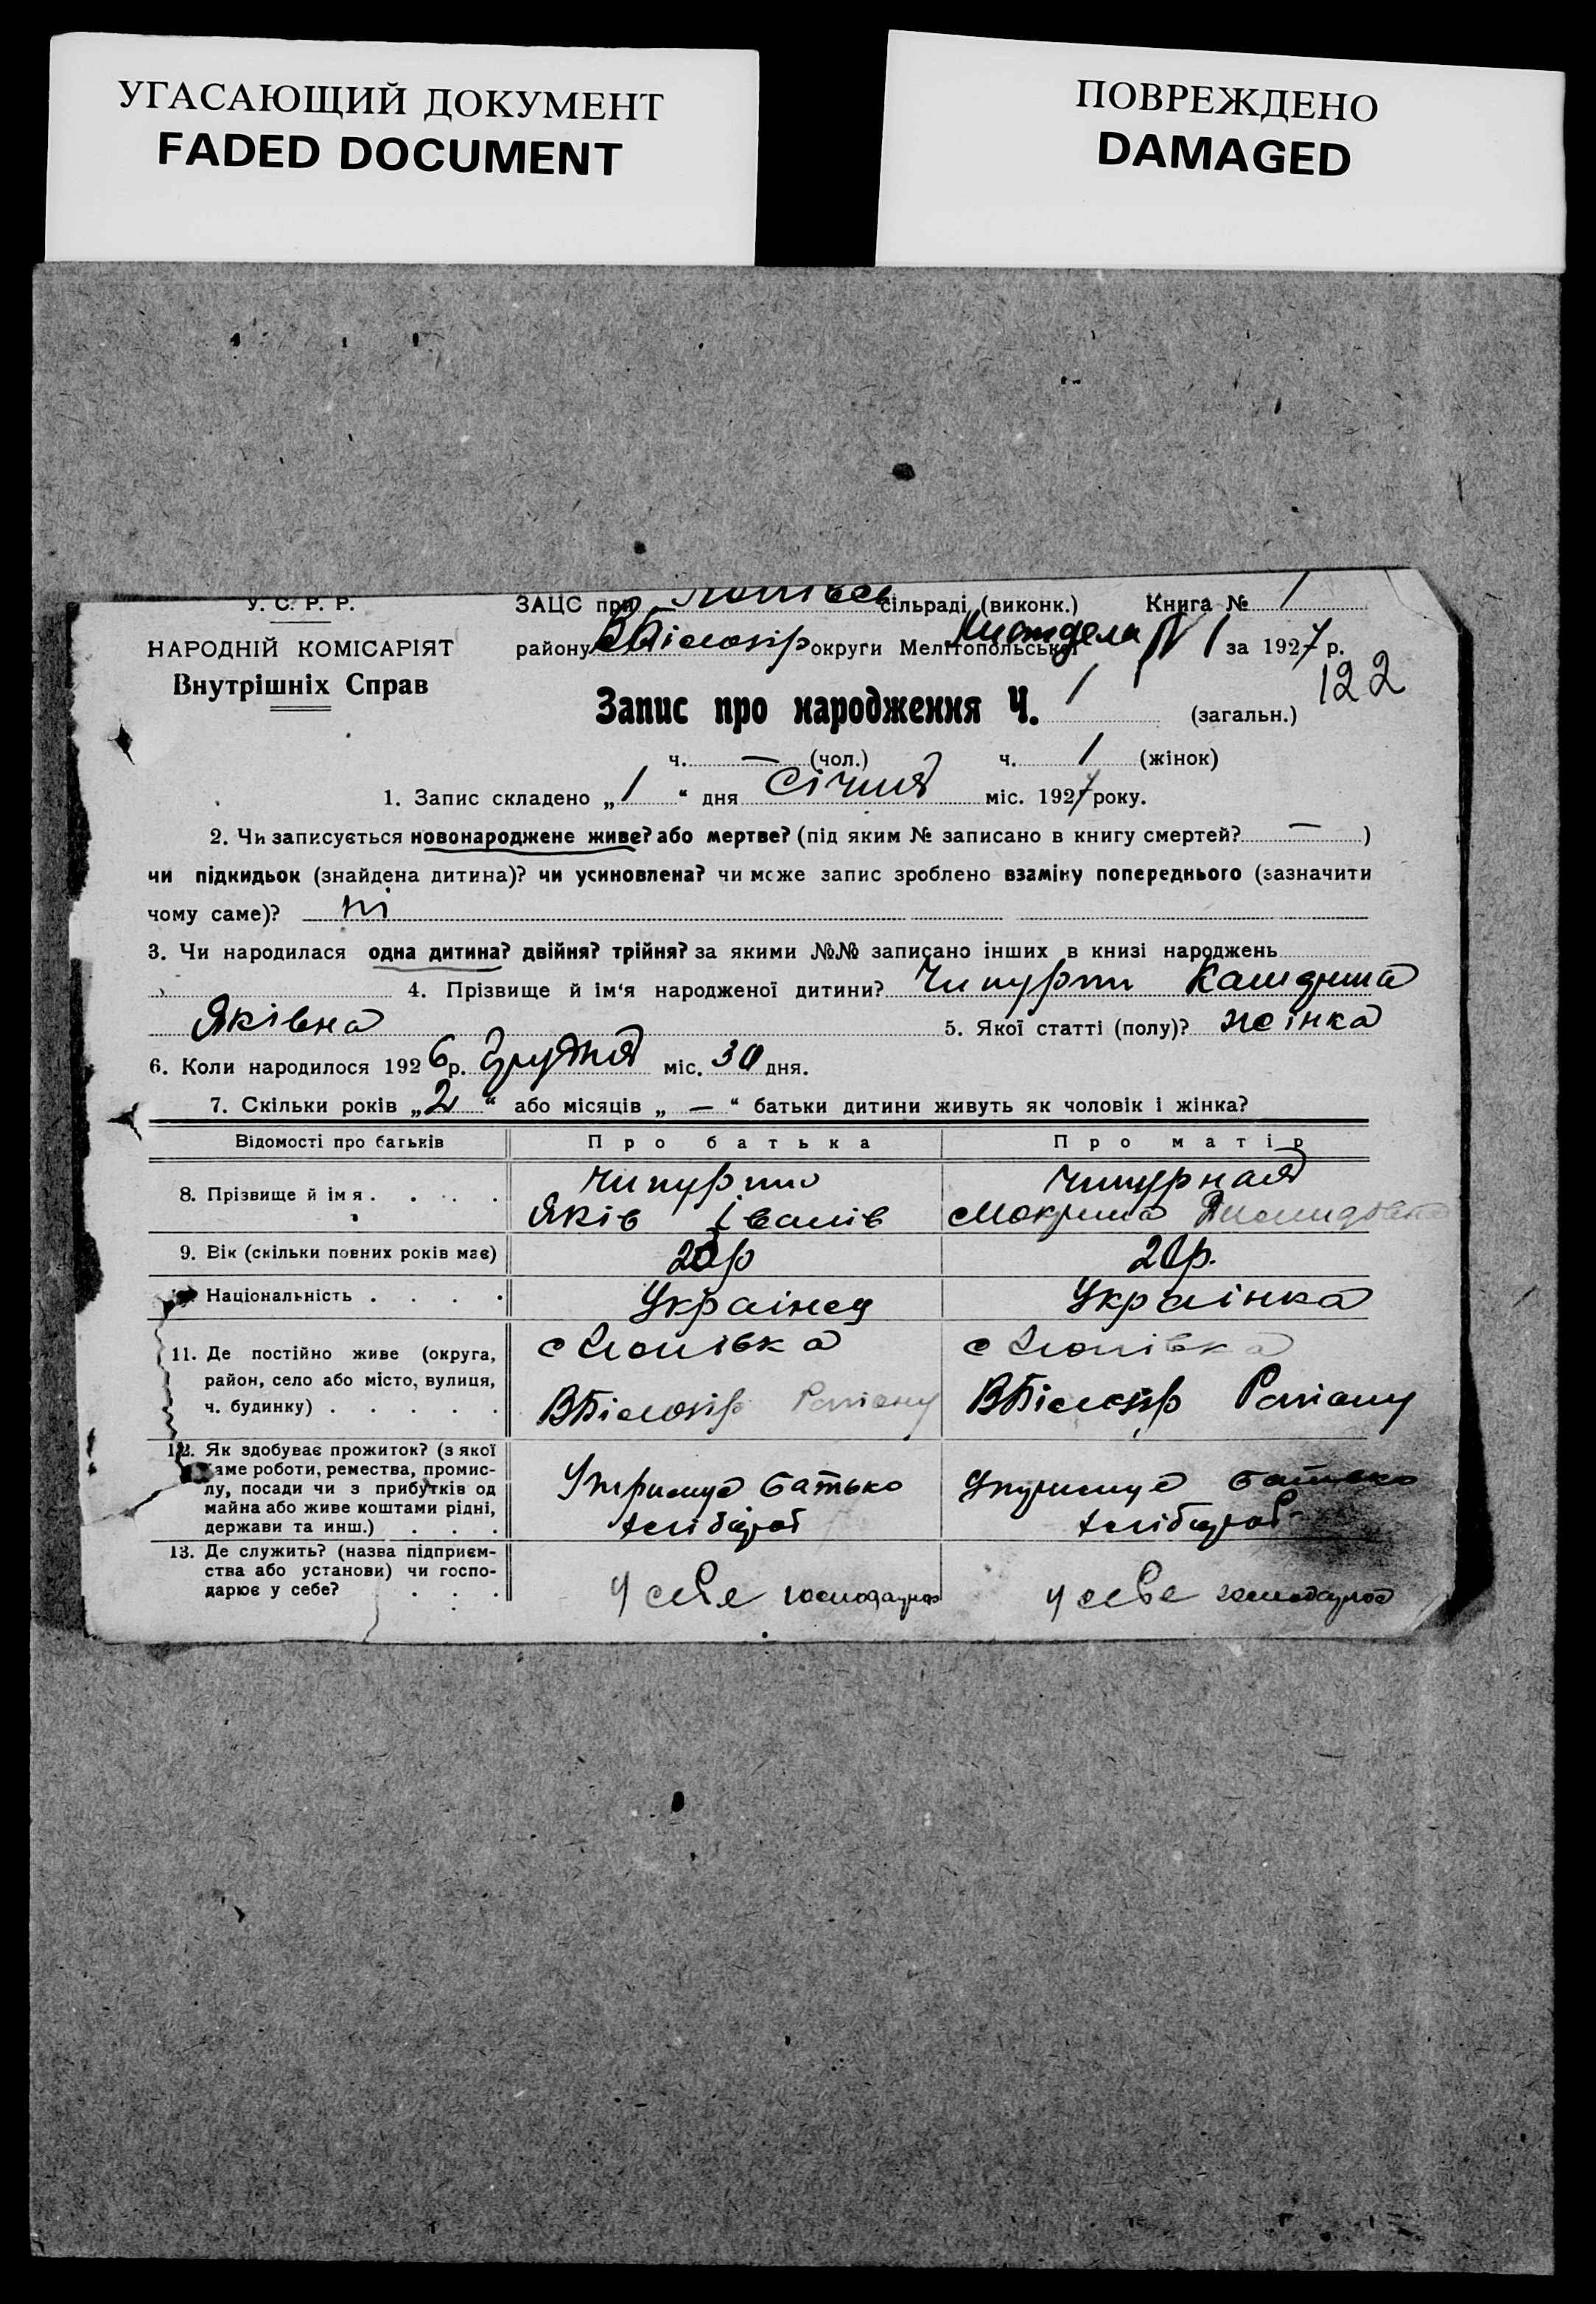 УГАСАЮЩИЙ ДОКУМЕНТ
FADED DOCUMENT
ПОВРЕЖДЕНО
DAMAGED
У. С. Р. Р.
НАРОДНІЙ КОМІСАРІЯТ
Внутрішніх Справ
ЗАЦС при сільраді (виконк.) Книга № 1
району округи Мелітопольської № 1 за 1927 р.
122
Запис про народження Ч. 1 (загальн.)
ч. — (чол.) ч. 1 (жінок)
1. Запис складено „1“ дня Січня міс. 1927 року.
2. Чи записується новонароджене живе? або мертве? (під яким № записано в книгу смертей? — )
чи підкидьок (знайдена дитина)? чи усиновлена? чи може запис зроблено взаміну попереднього (зазначити
чому саме)? ні
3. Чи народилася одна дитина? двійня? трійня? за якими №№ записано інших в книзі народжень
4. Прізвище й ім‘я народженої дитини?
Яківна 5. Якої статті (полу)? жінка
6. Коли народилося 1926 р. Грудня міс. 30 дня.
7. Скільки років „2“ або місяців „ — “ батьки дитини живуть як чоловік і жінка?
Відомості про батьків Про батька Про матір
8. Прізвище й імя . . . . Чипурная
Яків Іванів Мокрина
9. Вік (скільки повних років має) 20р.
Національність . . . . Украінец Украінка
11. Де постійно живе (округа,
район, село або місто, вулиця,
ч. будинку) . . . . .
12. Як здобуває прожиток? (з якої
саме роботи, ремества, промис-
лу, посади чи з прибутків од
майна або живе коштами рідні,
держави та инш.) . . .
батько
хлібороб хлібороб
13. Де служить? (назва підприєм-
ства або установи) чи госпо-
дарює у себе? . . .
у себе у себе